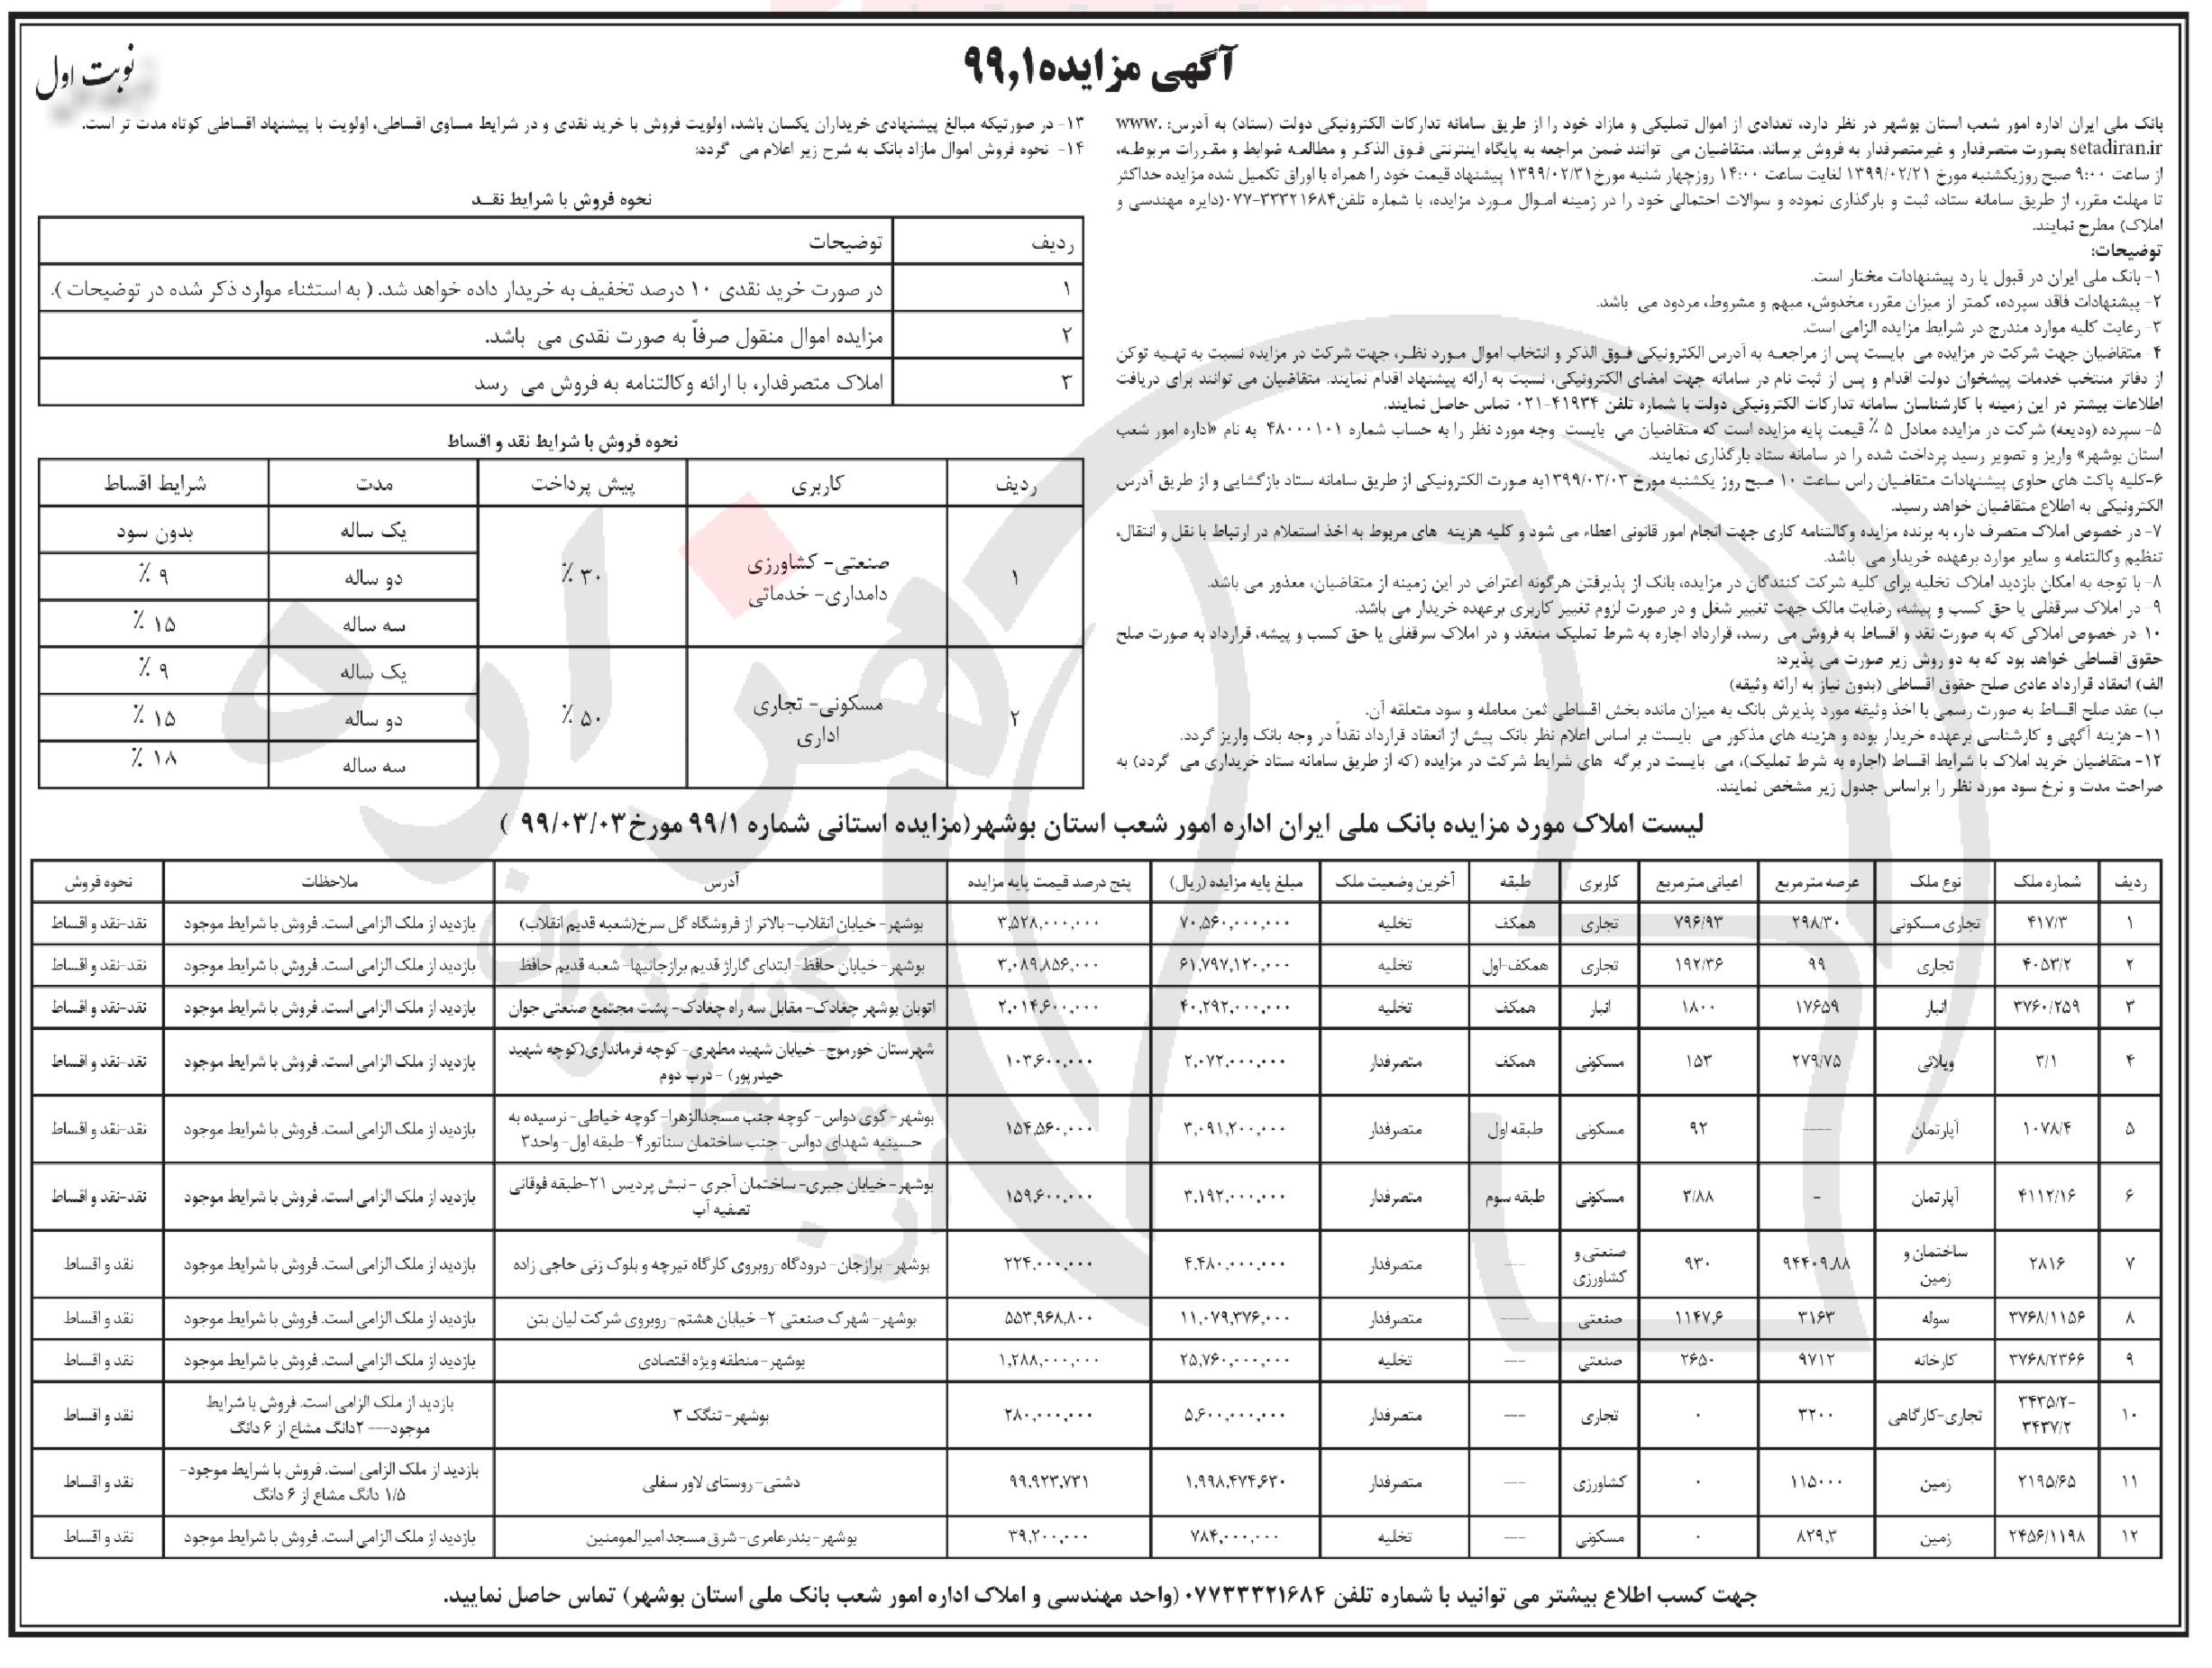 آگهی مزایده۹۹,۱
نوبت اول
بانک ملی ایران اداره امور شعب استان بوشهر در نظر دارد، تعدادی از اموال تملیکی و مازاد خود را از طریق سامانه تدارکات الکترونیکی دولت (ستاد) به آدرس: www.
setadiran.ir بصورت متصرفدار و غیرمتصرفدار به فروش برساند. متقاضیان می توانند ضمن مراجعه به پایگاه اینترنتی فوق الذکر و مطالعه ضوابط و مقررات مربوطه،
از ساعت ۹:۰۰ صبح روزیکشنبه مورخ ۱۳۹۹/۰۲/۲۱ لغایت ساعت ۱۴:۰۰ روزچهار شنبه مورخ۱۳۹۹/۰۲/۳۱ پیشنهاد قیمت خود را همراه با اوراق تکمیل شده مزایده حداکثر
تا مهلت مقرر، از طریق سامانه ستاد، ثبت و بارگذاری نموده و سوالات احتمالی خود را در زمینه اموال مورد مزایده، با شماره تلفن۳۳۳۲۱۶۸۴-۰۷۷(دایره مهندسی و
املاک) مطرح نمایند.
توضیحات:
۱- بانک ملی ایران در قبول یا رد پیشنهادات مختار است.
۲- پیشنهادات فاقد سپرده، کمتر از میزان مقرر، مخدوش، مبهم و مشروط، مردود می باشد.
۳- رعایت کلیه موارد مندرج در شرایط مزایده الزامی است.
۴- متقاضیان جهت شرکت در مزایده می بایست پس از مراجعه به آدرس الکترونیکی فوق الذکر و انتخاب اموال مورد نظر، جهت شرکت در مزایده نسبت به تهیه توکن
از دفاتر منتخب خدمات پیشخوان دولت اقدام و پس از ثبت نام در سامانه جهت امضای الکترونیکی، نسبت به ارائه پیشنهاد اقدام نمایند. متقاضیان می توانند برای دریافت
اطلاعات بیشتر در این زمینه با کارشناسان سامانه تدارکات الکترونیکی دولت با شماره تلفن ۴۱۹۳۴-۰۲۱ تماس حاصل نمایند.
۵- سپرده (ودیعه) شرکت در مزایده معادل ۵ ٪ قیمت پایه مزایده است که متقاضیان می بایست وجه مورد نظر را به حساب شماره ۴۸۰۰۰۱۰۱ به نام «اداره امور شعب
استان بوشهر» واریز و تصویر رسید پرداخت شده را در سامانه ستاد بارگذاری نمایند.
۶-کلیه پاکت های حاوی پیشنهادات متقاضیان راس ساعت ۱۰ صبح روز یکشنبه مورخ ۱۳۹۹/۰۳/۰۳به صورت الکترونیکی از طریق سامانه ستاد بازگشایی و از طریق آدرس
الکترونیکی به اطلاع متقاضیان خواهد رسید.
۷- در خصوص املاک متصرف دار، به برنده مزایده وکالتنامه کاری جهت انجام امور قانونی اعطاء می شود و کلیه هزینه های مربوط به اخذ استعلام در ارتباط با نقل و انتقال،
تنظیم وکالتنامه و سایر موارد برعهده خریدار می باشد.
۸- با توجه به امکان بازدید املاک تخلیه برای کلیه شرکت کنندگان در مزایده، بانک از پذیرفتن هرگونه اعتراض در این زمینه از متقاضیان، معذور می باشد.
۹- در املاک سرقفلی یا حق کسب و پیشه، رضایت مالک جهت تغییر شغل و در صورت لزوم تغییر کاربری برعهده خریدار می باشد.
۱۰- در خصوص املاکی که به صورت نقد و اقساط به فروش می رسد، قرارداد اجاره به شرط تملیک منعقد و در املاک سرقفلی یا حق کسب و پیشه، قرارداد به صورت صلح
حقوق اقساطی خواهد بود که به دو روش زیر صورت می پذیرد:
الف) انعقاد قرارداد عادی صلح حقوق اقساطی (بدون نیاز به ارائه وثیقه)
ب) عقد صلح اقساط به صورت رسمی با اخذ وثیقه مورد پذیرش بانک به میزان مانده بخش اقساطی ثمن معامله و سود متعلقه آن.
۱۱- هزینه آگهی و کارشناسی برعهده خریدار بوده و هزینه های مذکور می بایست بر اساس اعلام نظر بانک پیش از انعقاد قرارداد نقداً در وجه بانک واریز گردد.
۱۲- متقاضیان خرید املاک با شرایط اقساط (اجاره به شرط تملیک)، می بایست در برگه های شرایط شرکت در مزایده (که از طریق سامانه ستاد خریداری می گردد) به
صراحت مدت و نرخ سود مورد نظر را براساس جدول زیر مشخص نمایند.
۱۳- در صورتیکه مبالغ پیشنهادی خریداران یکسان باشد، اولویت فروش با خرید نقدی و در شرایط مساوی اقساطی، اولویت با پیشنهاد اقساطی کوتاه مدت تر است.
۱۴- نحوه فروش اموال مازاد بانک به شرح زیر اعلام می گردد:
نحوه فروش با شرایط نقد
ردیف توضیحات
۱ در صورت خرید نقدی ۱۰ درصد تخفیف به خریدار داده خواهد شد. ( به استثناء موارد ذکر شده در توضیحات ).
۲ مزایده اموال منقول صرفاً به صورت نقدی می باشد.
۳ املاک متصرفدار، با ارائه وکالتنامه به فروش می رسد
نحوه فروش با شرایط نقد و اقساط
ردیف کاربری پیش پرداخت مدت شرایط اقساط
۱ صنعتی- کشاورزی دامداری- خدماتی ۳۰ ٪ یک ساله بدون سود
دو ساله ۹ ٪
سه ساله ۱۵ ٪
۲ مسکونی- تجاری اداری ۵۰ ٪ یک ساله ۹ ٪
دو ساله ۱۵ ٪
سه ساله ۱۸ ٪
لیست املاک مورد مزایده بانک ملی ایران اداره امور شعب استان بوشهر(مزایده استانی شماره ۹۹/۱ مورخ۹۹/۰۳/۰۳ )
ردیف شماره ملک نوع ملک عرصه مترمربع اعیانی مترمربع کاربری طبقه آخرین وضعیت ملک مبلغ پایه مزایده(ریال) پنج درصد قیمت پایه مزایده آدرس ملاحظات نحوه فروش
۱ ۴۱۷/۳ تجاری مسکونی ۲۹۸/۳۰ ۷۹۶/۹۳ تجاری همکف تخلیه ۷۰,۵۶۰,۰۰۰,۰۰۰ ۳,۵۲۸,۰۰۰,۰۰۰ بوشهر- خیابان انقلاب- بالاتر از فروشگاه گل سرخ(شعبه قدیم انقلاب) بازدید از ملک الزامی است. فروش با شرایط موجود نقد-نقد و اقساط
۲ ۴۰۵۳/۲ تجاری ۹۹ ۱۹۲/۳۶ تجاری همکف-اول تخلیه ۶۱,۷۹۷,۱۲۰,۰۰۰ ۳,۰۸۹,۸۵۶,۰۰۰ بوشهر- خیابان حافظ- ابتدای گاراژ قدیم برازجانیها- شعبه قدیم حافظ بازدید از ملک الزامی است. فروش با شرایط موجود نقد-نقد و اقساط
۳ ۳۷۶۰/۲۵۹ انبار ۱۷۶۵۹ ۱۸۰۰ انبار همکف تخلیه ۴۰,۲۹۲,۰۰۰,۰۰۰ ۲,۰۱۴,۶۰۰,۰۰۰ اتوبان بوشهر چغادک- مقابل سه راه چغادک- پشت مجتمع صنعتی جوان بازدید از ملک الزامی است. فروش با شرایط موجود نقد-نقد و اقساط
۴ ۳/۱ ویلائی ۲۷۹/۷۵ ۱۵۳ مسکونی همکف متصرفدار ۲,۰۷۲,۰۰۰,۰۰۰ ۱۰۳,۶۰۰,۰۰۰ شهرستان خورموج- خیابان شهید مطهری- کوچه فرمانداری(کوچه شهید حیدرپور) -درب دوم بازدید از ملک الزامی است. فروش با شرایط موجود نقد-نقد و اقساط
۵ ۱۰۷۸/۴ آپارتمان ---- ۹۲ مسکونی طبقه اول متصرفدار ۳,۰۹۱,۲۰۰,۰۰۰ ۱۵۴,۵۶۰,۰۰۰ بوشهر- کوی دواس- کوچه جنب مسجدالزهرا- کوچه خیاطی- نرسیده به حسینیه شهدای دواس- جنب ساختمان سناتور۴- طبقه اول- واحد۳ بازدید از ملک الزامی است. فروش با شرایط موجود نقد-نقد و اقساط
۶ ۴۱۱۲/۱۶ آپارتمان - ۳/۸۸ مسکونی طبقه سوم متصرفدار ۳,۱۹۲,۰۰۰,۰۰۰ ۱۵۹,۶۰۰,۰۰۰ بوشهر- خیابان جبری- ساختمان آجری -نبش پردیس ۲۱-طبقه فوقانی تصفیه آب بازدید از ملک الزامی است. فروش با شرایط موجود نقد-نقد و اقساط
۷ ۲۸۱۶ ساختمان و زمین ۹۴۴۰۹,۸۸ ۹۳۰ صنعتی و کشاورزی --- متصرفدار ۴,۴۸۰,۰۰۰,۰۰۰ ۲۲۴,۰۰۰,۰۰۰ بوشهر- برازجان- درودگاه-روبروی کارگاه تیرچه و بلوک زنی حاجی زاده بازدید از ملک الزامی است. فروش با شرایط موجود نقد و اقساط
۸ ۳۷۶۸/۱۱۵۶ سوله ۳۱۶۳ ۱۱۴۷,۶ صنعتی ---- متصرفدار ۱۱,۰۷۹,۳۷۶,۰۰۰ ۵۵۳,۹۶۸,۸۰۰ بوشهر- شهرک صنعتی ۲- خیابان هشتم- روبروی شرکت لیان بتن بازدید از ملک الزامی است. فروش با شرایط موجود نقد و اقساط
۹ ۳۷۶۸/۲۳۶۶ کارخانه ۹۷۱۲ ۲۶۵۰ صنعتی --- تخلیه ۲۵,۷۶۰,۰۰۰,۰۰۰ ۱,۲۸۸,۰۰۰,۰۰۰ بوشهر-منطقه ویژه اقتصادی بازدید از ملک الزامی است. فروش با شرایط موجود نقد و اقساط
۱۰ ۳۴۳۵/۲-۳۴۳۷/۲ تجاری-کارگاهی ۳۲۰۰ ۰ تجاری --- متصرفدار ۵,۶۰۰,۰۰۰,۰۰۰ ۲۸۰,۰۰۰,۰۰۰ بوشهر- تنگک ۳ بازدید از ملک الزامی است. فروش با شرایط موجود--- ۲دانگ مشاع از ۶ دانگ نقد و اقساط
۱۱ ۲۱۹۵/۶۵ زمین ۱۱۵۰۰۰ ۰ کشاورزی --- متصرفدار ۱,۹۹۸,۴۷۴,۶۳۰ ۹۹,۹۲۳,۷۳۱ دشتی- روستای لاور سفلی بازدید از ملک الزامی است. فروش با شرایط موجود- ۱/۵ دانگ مشاع از ۶ دانگ نقد و اقساط
۱۲ ۲۴۵۶/۱۱۹۸ زمین ۸۲۹,۳ ۰ مسکونی --- تخلیه ۷۸۴,۰۰۰,۰۰۰ ۳۹,۲۰۰,۰۰۰ بوشهر- بندرعامری- شرق مسجد امیرالمومنین بازدید از ملک الزامی است. فروش با شرایط موجود نقد و اقساط
جهت کسب اطلاع بیشتر می توانید با شماره تلفن ۰۷۷۳۳۳۲۱۶۸۴ (واحد مهندسی و املاک اداره امور شعب بانک ملی استان بوشهر) تماس حاصل نمایید.